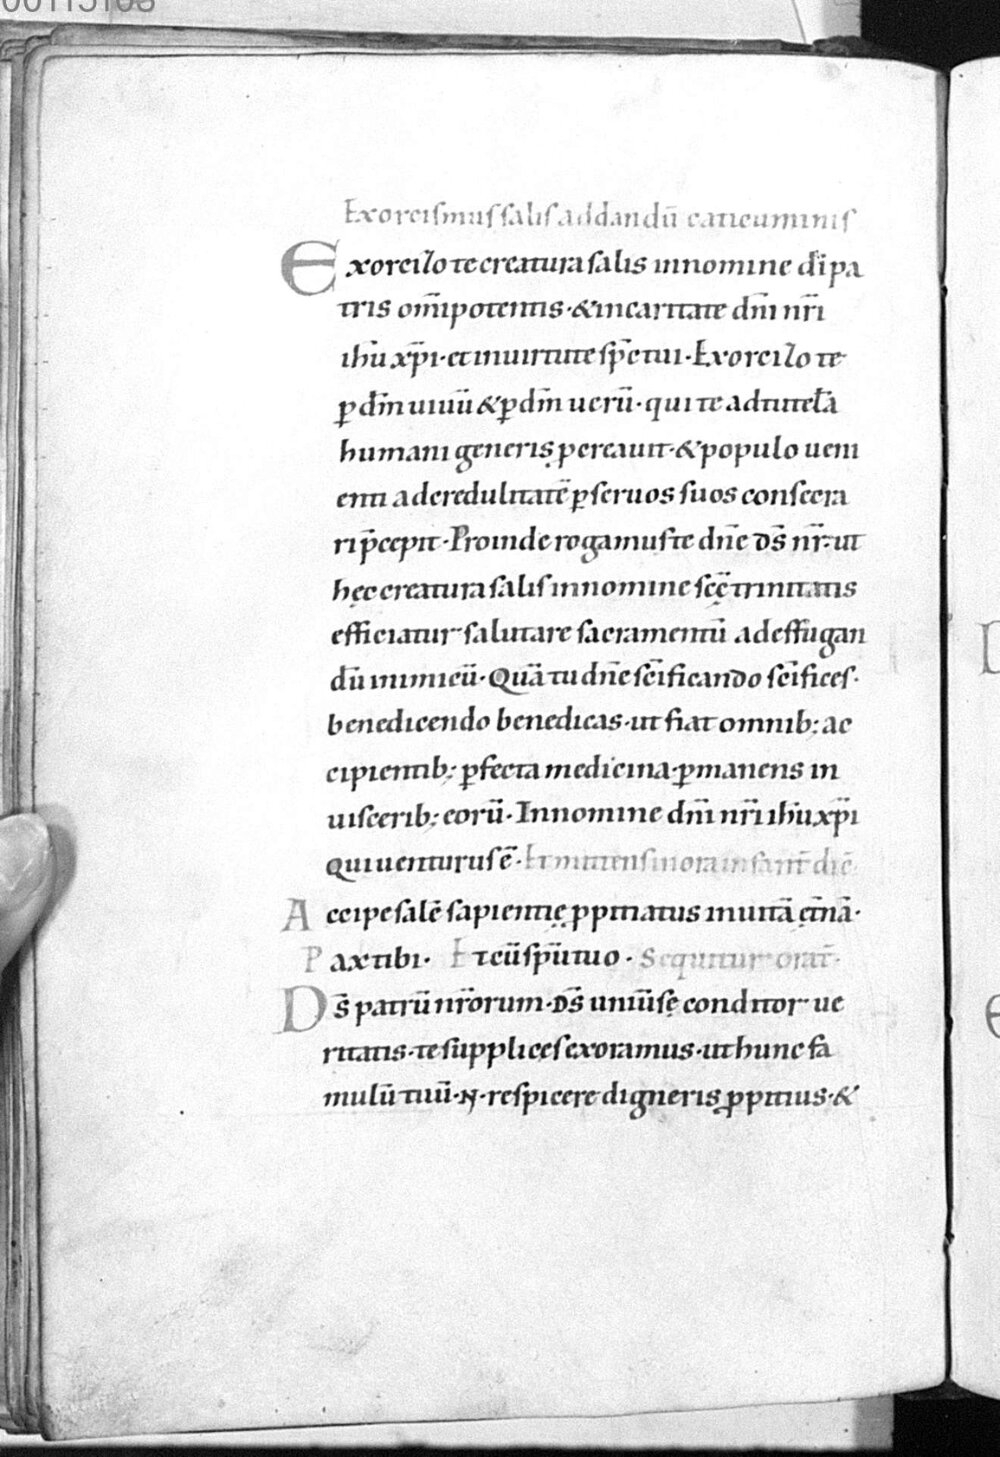 00115108
Exorcismus salis addandū caticuminis
Exorcizo te creatura salis in nomine d̄i pa
tris om̄ipotentis · & in caritate dn̄i nr̄i
ihū xp̄i · et in uirtute sp̄c tui · Exorcizo te
p̱ dm̄ uiuū & p̱ dm̄ uerū · qui te ad tutelā
humani generis p̱creauit · & populo ueni
enti ad credulitatē p̱ seruos suos consecra
ri p̄cepit · Proinde rogamus te dn̄e ds̄ nr̄ · ut
hęc creatura salis in nomine sc̄ę trinitatis
efficiatur salutare sacramentū ad effugan
dū inimicū · Quā tu dn̄e sc̄ificando sc̄ifices ·
benedicendo benedicas · ut fiat omnib; ac
cipientib; p̱fecta medicina · p̱manens in
uiscerib; eorū · In nomine dn̄i nr̄i ihū xp̄i
qui uenturus ē · Et mittens in ora infant̄ dic̄
Accipe salē sapientię p̱pitiatus in uitā ęt̄nā ·
Pax tibi · Et cū sp̄u tuo · Sequitur orat̄ ·
Ds̄ patrū nr̄orum · ds̄ uniūsę conditor ue
ritatis · te supplices exoramus · ut hunc fa
mulū tuū · N · respicere digneris p̱pitius · &